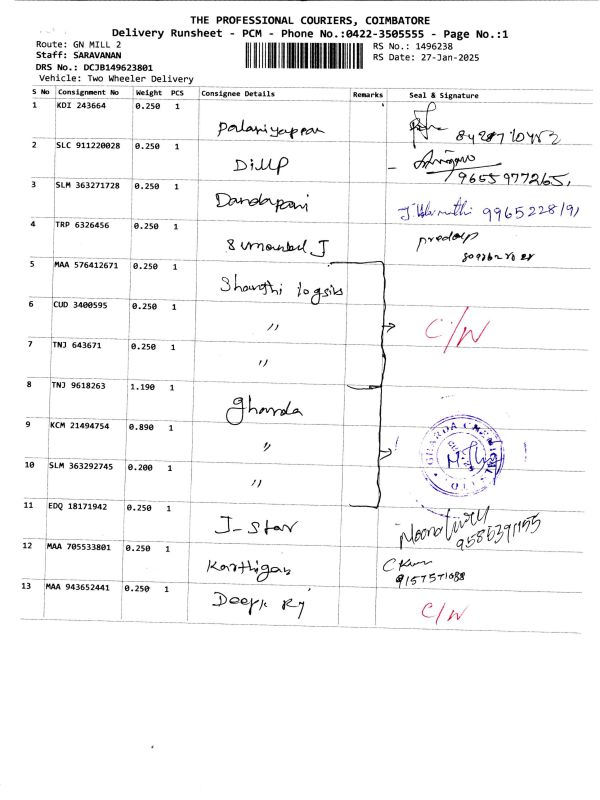 THE PROFESSIONAL COURIERS, COIMBATORE
Delivery Runsheet - PCM - Phone No.:0422-3505555 - Page No.:1
Route: GN MILL 2
RS No.: 1496238
Staff: SARAVANAN
RS Date: 27-Jan-2025
DRS No.: DCJB149623801
Vehicle: Two Wheeler Delivery
S No Consignment No Weight PCS Consignee Details Remarks Seal & Signature
1 KDI 243664 0.250 1 Palaniyappan
2 SLC 911220028 0.250 1 Dillip
9655977265
3 SLM 363271728 0.250 1 Dandapani 9965228191
4 TRP 6326456 0.250 1 J
5 MAA 576412671 0.250 1 Shanthi
6 CUD 3400595 0.250 1 " C/N
7 TNJ 643671 0.250 1 "
8 TNJ 9618263 1.190 1 gharda
9 KCM 21494754 0.890 1 " GHARDA CHEMICALS LTD
10 SLM 363292745 0.200 1 "
11 EDQ 18171942 0.250 1 J-Star
9585391155
12 MAA 705533801 0.250 1 Karthigan
9157571088
13 MAA 943652441 0.250 1 C/N